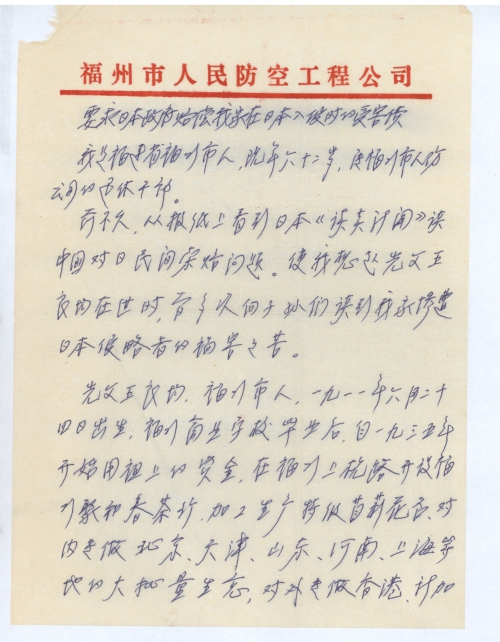 福州市人民防空工程公司
要求日本政府赔偿我家在日本入侵时的受害债
我是福建省福州市人，现年六十二岁，是福州市人防
公司的退休干部。
前不久，从报纸上看到日本《读卖新闻》谈
中国对日民间索赔问题。使我想起先父王
良均在世时，曾多次向子孙们谈到我家惨遭
日本侵略者的祸害之苦。
先父王良均，福州市人，一九一一年六月二十
四日出生，福州商业学校毕业后，自一九三五年
开始用祖上的资金，在福州上杭路开设福
州聚和春茶行，加工生产特级茉莉花茶，对
内是做北京、天津、山东、河南、上海等
地的大批量生意，对外是做香港、